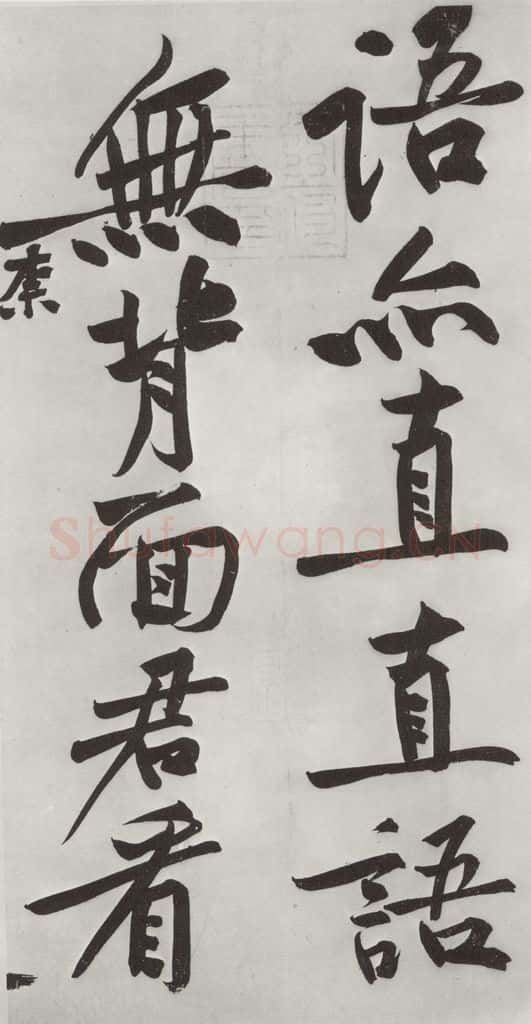 語亦直直語
無背面君看
Shufawang.CN